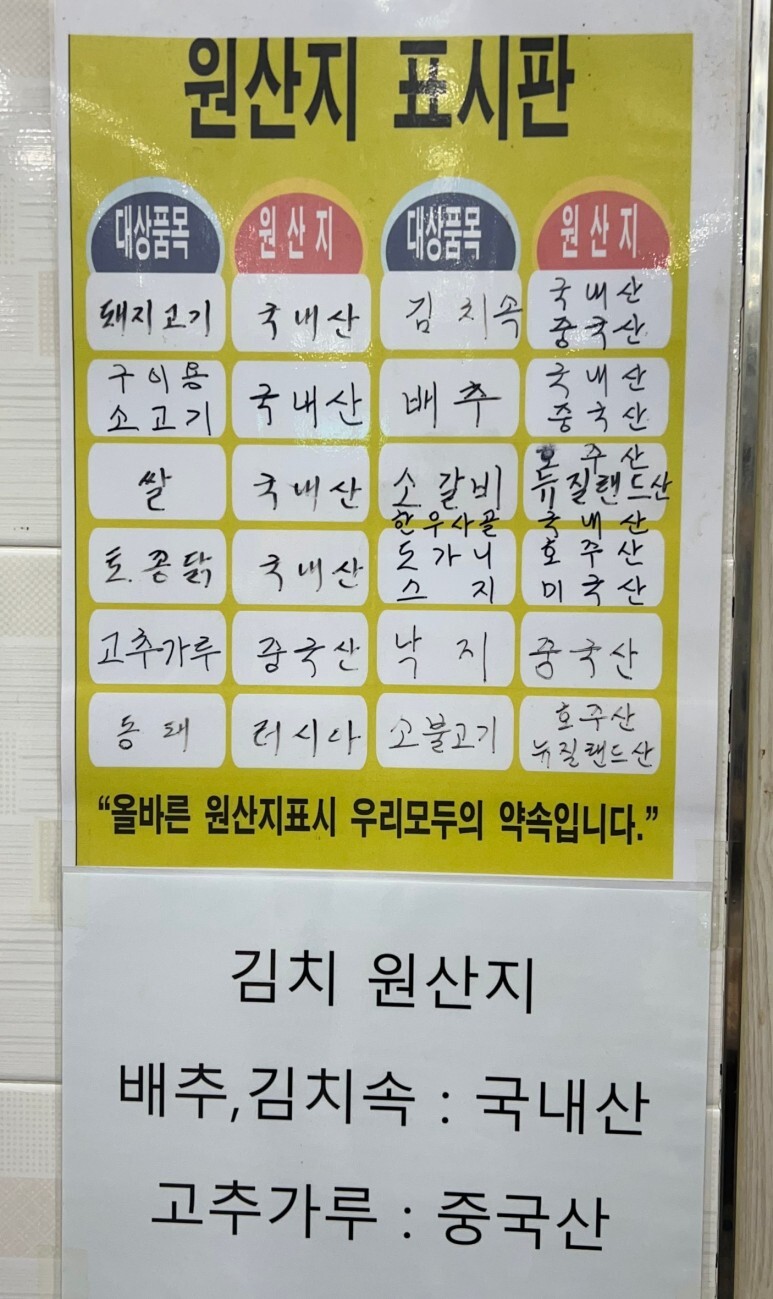 원산지 표시판
대상품목 원산지 대상품목 원산지
돼지고기 국내산 김치속 국내산 중국산
구이용 소고기 국내산 배추 국내산 중국산
쌀 국내산 소갈비 호주산 뉴질랜드산
한우사골 국내산
토종닭 국내산 도가니 호주산
스지 미국산
고추가루 중국산 낙지 중국산
동태 러시아 소불고기 호주산 뉴질랜드산
“올바른 원산지표시 우리모두의 약속입니다.”
김치 원산지
배추,김치속 : 국내산
고추가루 : 중국산